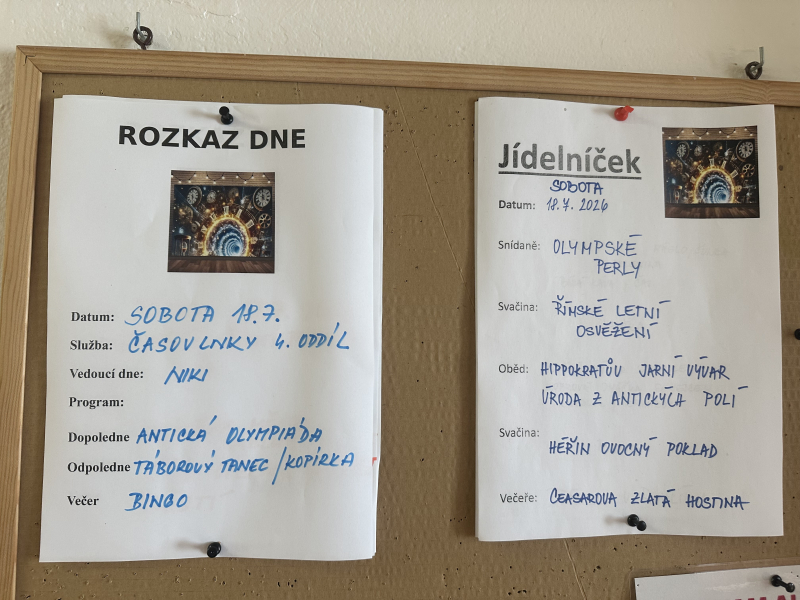 ROZKAZ DNE
Datum: SOBOTA 18.7.
Služba: ČASOVLNKY 4. ODDÍL
Vedoucí dne: NIKI
Program:
Dopoledne ANTICKÁ OLYMPIÁDA
Odpoledne TÁBOROVÝ TANEC / KOPÍRKA
Večer BINGO
Jídelníček
SOBOTA
Datum: 18.7. 2026
Snídaně: OLYMPSKÉ
PERLY
Svačina: ŘÍMSKÉ LETNÍ
OSVĚŽENÍ
Oběd: HIPPOKRATŮV JARNÍ VÝVAR
ÚRODA Z ANTICKÝCH POLÍ
Svačina:
HÉŘIN OVOCNÝ POKLAD
Večeře: CEASAROVA ZLATÁ HOSTINA